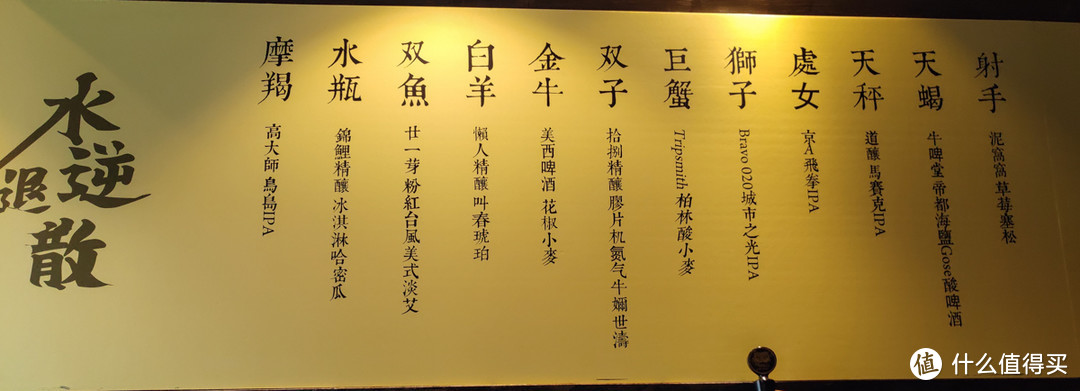 水逆退散
摩羯
高大師 鳥島IPA
水瓶
錦鯉精釀 冰淇淋哈密瓜
双魚
廿一芽 粉紅台風美式淡艾
白羊
懶人精釀 叫春琥珀
金牛
美西啤酒 花椒小麥
双子
拾捌精釀 膠片机氮气牛嬭世濤
巨蟹
Tripsmith 柏林酸小麥
獅子
Bravo 020 城市之光IPA
處女
京A 飛拳IPA
天秤
道釀 馬賽克IPA
天蝎
牛啤堂 帝都海鹽Gose酸啤酒
射手
泥窩窩 草莓塞松
值 什么值得买